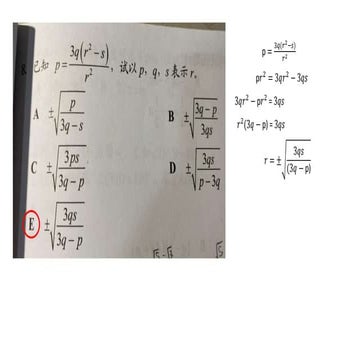 8. 已知 p = 3q(r² − s)/r², 试以 p, q, s 表示 r。
A ±√(p/(3q − s))
B ±√((3q − p)/(3qs))
C ±√(3ps/(3q − p))
D ±√(3qs/(p − 3q))
E ±√(3qs/(3q − p))
p = 3q(r²−s)/r²
pr² = 3qr² − 3qs
3qr² − pr² = 3qs
r²(3q − p) = 3qs
r = ±√(3qs/(3q − p))